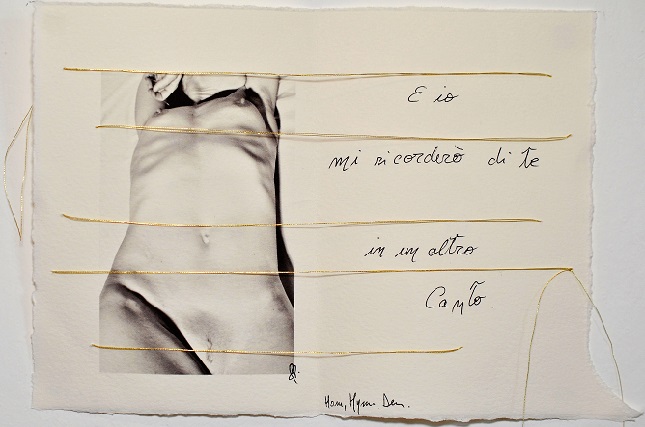 E io
mi ricorderò di te
in un altro
Canto
Hom, Hymn. Dem.